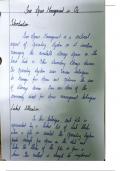 Free Space Management in OS
Introduction
Free Space Management is a critical
aspect of Operating System as it involves
managing the available storage space on the
hard disk or other secondary storage devices
The Operating System uses various techniques
to manage free space and optimize the use
of storage devices. Some are some of the
commonly used free space management techniques
Linked Allocation
In this technique, each file is
represented by a linked list of disk blocks
when a file is created, the Operating System
finds enough free space on the disk and
links the blocks of the file to form a
chain. This method is simple to implement